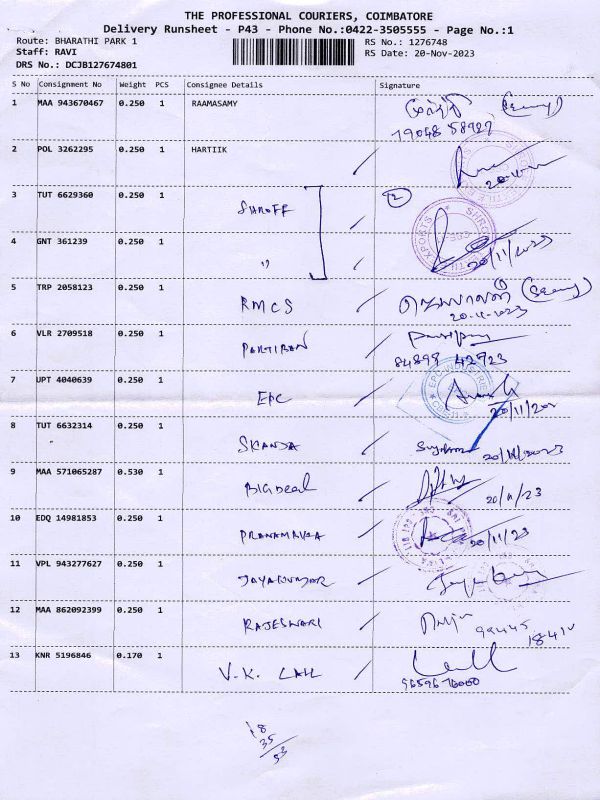 THE PROFESSIONAL COURIERS, COIMBATORE
Delivery Runsheet - P43 - Phone No.:0422-3505555 - Page No.:1
Route: BHARATHI PARK 1
RS No.: 1276748
Staff: RAVI
RS Date: 20-Nov-2023
DRS No.: DCJB127674801
S No Consignment No Weight PCS Consignee Details Signature
1 MAA 943670467 0.250 1 RAAMASAMY
79048 58927
2 POL 3262295 0.250 1 HARTIIK
3 TUT 6629360 0.250 1 SHROFF 2
4 GNT 361239 0.250 1 " 20/11/2023
5 TRP 2058123 0.250 1 RMCS
20-11-2023
6 VLR 2709518 0.250 1 PARTIBAN
84898 42723
7 UPT 4040639 0.250 1 EPC
8 TUT 6632314 0.250 1 SKANDA 20/11/2023
9 MAA 571065287 0.530 1 BIGDEAL 20/11/23
10 EDQ 14981853 0.250 1 20/11/23
11 VPL 943277627 0.250 1 JAYAKUMAR
12 MAA 862092399 0.250 1 RAJESWARI
13 KNR 5196846 0.170 1 V.K. LALL
96596 76000
18
35
53